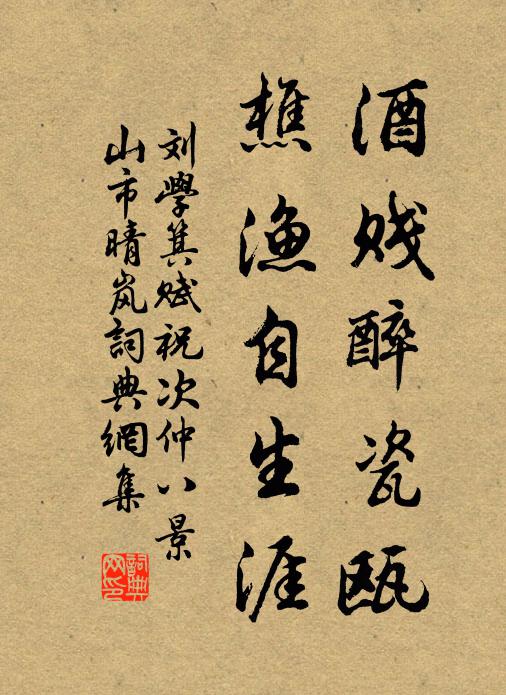 酒贱醉瓷瓯
樵渔自生涯
刘学箕赋祝次仲八景
山市晴岚詞典網集
詞典网印